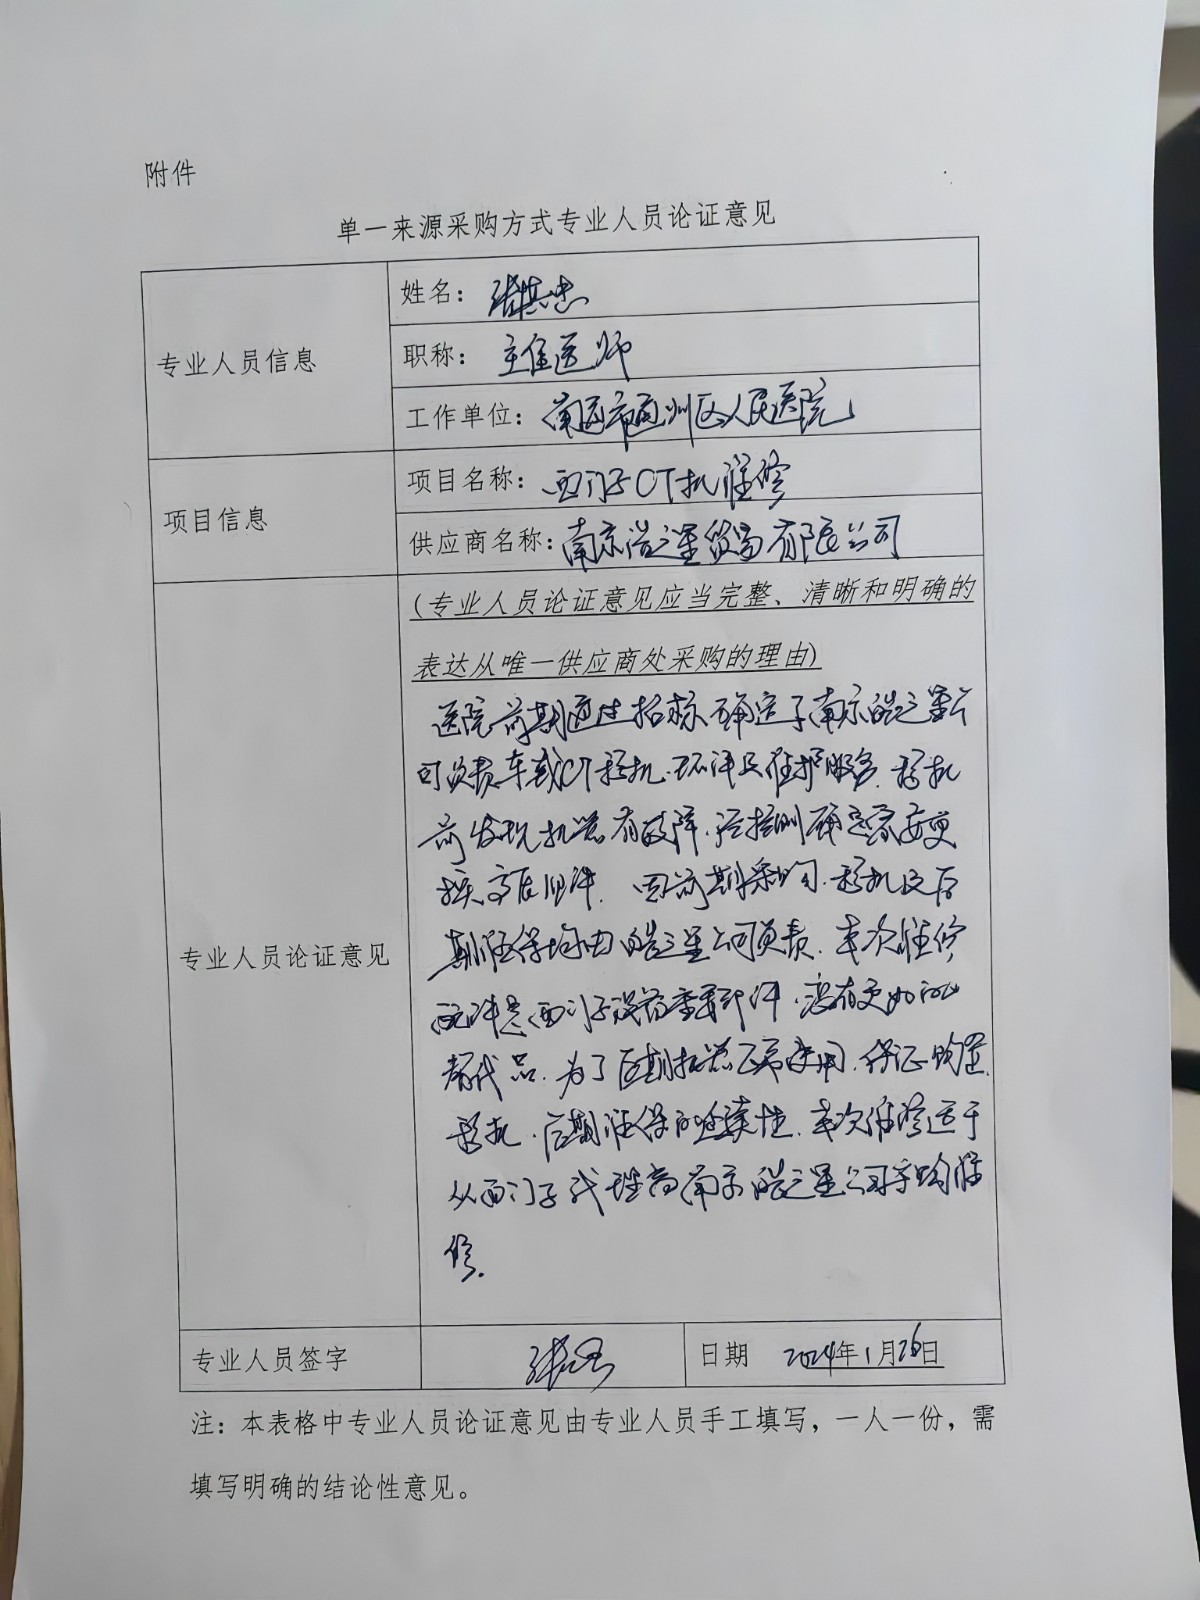 附件
单一来源采购方式专业人员论证意见
专业人员信息
姓名：张其忠
职称：主任医师
工作单位：南通市通州区人民医院
项目信息
项目名称：西门子CT机维修
供应商名称：南京浩之星贸易有限公司
（专业人员论证意见应当完整、清晰和明确的
表达从唯一供应商处采购的理由）
专业人员论证意见
医院前期通过招标确定了南京皓之星公
司负责车载CT移机、环评及维护服务、移机
前发现机器有故障，经检测确定需要更
换高压部件。因前期采购、移机及后
期维保均由皓之星公司负责，本次维修
配件是西门子设备重要部件，没有更好的
替代品，为了后期机器正常使用，保证购置、
移机、后期维保的延续性，本次维修适于
从西门子代理商南京皓之星公司采购维
修。
专业人员签字
日期 2024年1月26日
注：本表格中专业人员论证意见由专业人员手工填写，一人一份，需
填写明确的结论性意见。